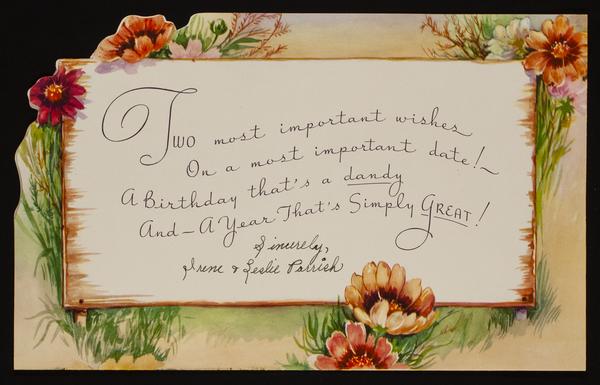 Two most important wishes
On a most important date!
A Birthday that's a dandy
And - A Year That's Simply GREAT!
Sincerely,
Irene & Leslie Parrish